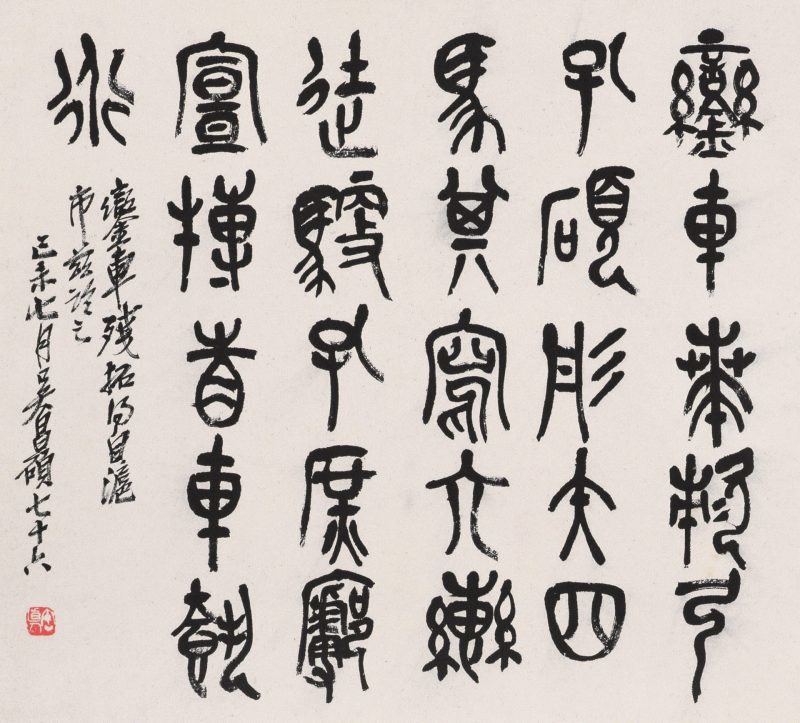 鑾車弓
孔碩彤矢四
馬其寫六轡
徒馭孔庶
宣搏眚車
行
鑾車殘拓得自滬
市茲臨之
己未七月吳昌碩七十六